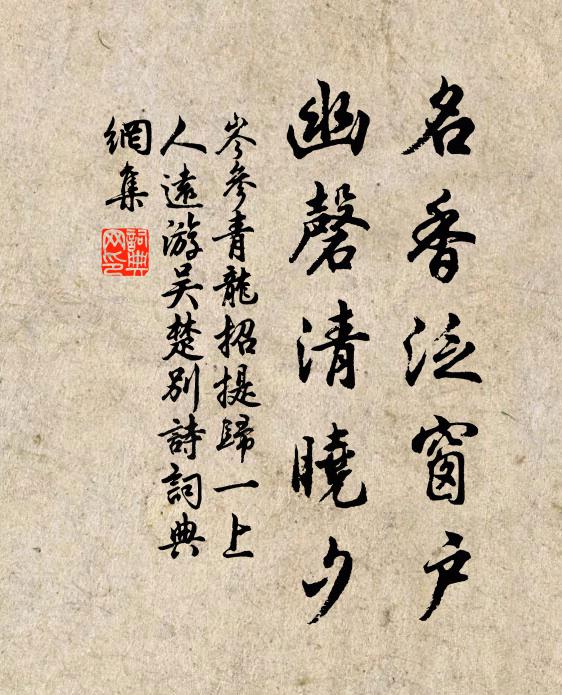 名香泛窗户
幽磬清曉夕
岑參青龍招提歸一上
人遠游吴楚别詩詞典
網集
詞典
网印